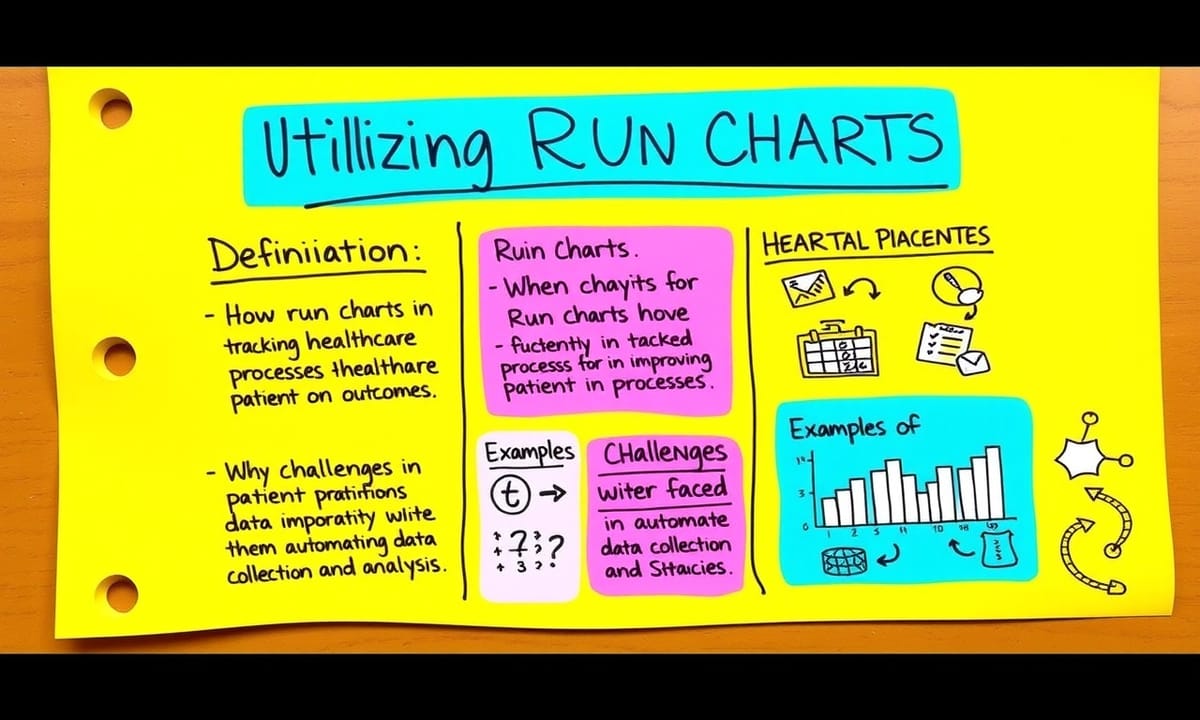 Utillizing RUN CHARTS
Definiiation:
- How run charts in
tracking healthcare
processes thealthare
patient on outcomes.
- Why challenges in
patient pratifions
data imporatity wlite
them automating data
collection and analysis.
Ruin Charts.
- When chayits for
Run charts hove
- fuctently in tacked
processs for in improving
patient in processes.
Examples
t
? ?
3
CHallenges
witer faced
in automate
data collection
and Sttaicies.
HEARTAL PIACENTES
Examples of
3
0
1 2 5 11 10 18